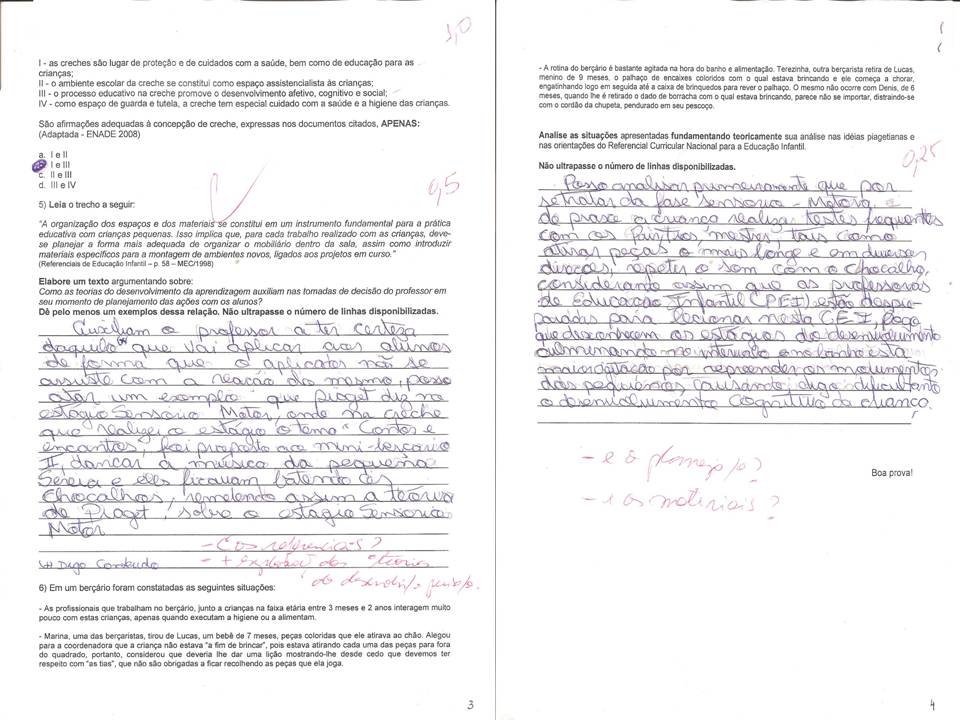 1,0
I - as creches são lugar de proteção e de cuidados com a saúde, bem como de educação para as
crianças;
II - o ambiente escolar da creche se constitui como espaço assistencialista às crianças;
III - o processo educativo na creche promove o desenvolvimento afetivo, cognitivo e social;
IV - como espaço de guarda e tutela, a creche tem especial cuidado com a saúde e a higiene das crianças.
São afirmações adequadas à concepção de creche, expressas nos documentos citados, APENAS:
(Adaptada - ENADE 2008)
a. I e II
I e III
c. II e III
d. III e IV
0,5
5) Leia o trecho a seguir:
"A organização dos espaços e dos materiais se constitui em um instrumento fundamental para a prática
educativa com crianças pequenas. Isso implica que, para cada trabalho realizado com as crianças, deve-
se planejar a forma mais adequada de organizar o mobiliário dentro da sala, assim como introduzir
materiais específicos para a montagem de ambientes novos, ligados aos projetos em curso."
(Referenciais de Educação Infantil – p. 58 – MEC/1998)
Elabore um texto argumentando sobre:
Como as teorias do desenvolvimento da aprendizagem auxiliam nas tomadas de decisão do professor em
seu momento de planejamento das ações com os alunos?
Dê pelo menos um exemplos dessa relação. Não ultrapasse o número de linhas disponibilizadas.
Auxiliam o professor a ter certeza
daquilo que vai aplicar aos alunos
de forma que o aplicador não se
assuste com a reação do mesmo, posso
citar um exemplo que Piaget diz no
estágio Sensório Motor, onde na creche
que realizei o estágio o tema "Contos e
encantos, foi proposto ao mini-berçário
II, dançar a música da pequena
Sereia e eles ficavam batendo os
Chocalhos, remetendo assim a teoria
de Piaget, sobre o estágio Sensório
Motor
- Cos referenciais?
Digo Conteúdo
- + explo das teorias
do
6) Em um berçário foram constatadas as seguintes situações:
- As profissionais que trabalham no berçário, junto a crianças na faixa etária entre 3 meses e 2 anos interagem muito
pouco com estas crianças, apenas quando executam a higiene ou a alimentam.
- Marina, uma das berçaristas, tirou de Lucas, um bebê de 7 meses, peças coloridas que ele atirava ao chão. Alegou
para a coordenadora que a criança não estava "a fim de brincar", pois estava atirando cada uma das peças para fora
do quadrado, portanto, considerou que deveria lhe dar uma lição mostrando-lhe desde cedo que devemos ter
respeito com "as tias", que não são obrigadas a ficar recolhendo as peças que ela joga.
3
- A rotina do berçário é bastante agitada na hora do banho e alimentação. Terezinha, outra berçarista retira de Lucas,
menino de 9 meses, o palhaço de encaixes coloridos com o qual estava brincando e ele começa a chorar,
engatinhando logo em seguida até a caixa de brinquedos para rever o palhaço. O mesmo não ocorre com Denis, de 6
meses, quando lhe é retirado o dado de borracha com o qual estava brincando, parece não se importar, distraindo-se
com o cordão da chupeta, pendurado em seu pescoço.
Analise as situações apresentadas fundamentando teoricamente sua análise nas idéias piagetianas e
nas orientações do Referencial Curricular Nacional para a Educação Infantil.
0,25
Não ultrapasse o número de linhas disponibilizadas.
Posso analisar primeiramente que por
se tratar da fase sensório - Motora, é
de praxe a criança realizar testes frequentes
com os mestres, tais como
atirar peças o mais longe e em diversas
direções, repetir o som com o chocalho,
considerando assim que as professoras
de Educação Infantil (PEI) estão despre-
paradas para lecionar nesta C.E.I, logo
que desconhecem os estágios do desenvolvimento
culminando no intervalo e no banho esta
maior agitação por repreender os movimentos
dos pequeninos, causando, digo dificultando
o desenvolvimento Cognitivo da criança.
- e o planeja/o?
- e os materiais?
Boa prova!
4